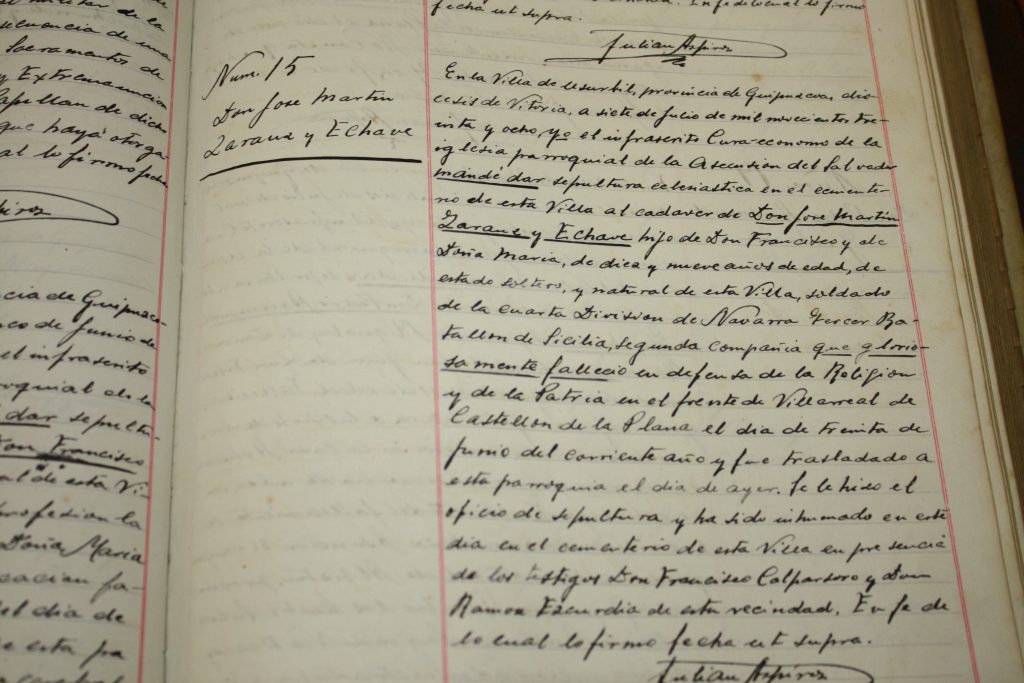 al militar de la
secuencia de una
Sacramentos de
y Extremauncion
Capellan de dicho
que haya otorga-
al lo firmo fecha
cia de Guipuzco-
nco de Junio de
el infrascrito
roquial de la
dar sepultu-
Don Francisco
al de esta Vi-
profesion la
Doña Maria
cacion fa-
el dia de
e esta pa
Num. 15
Don Jose Martin
Zarauz y Echave
fecha ut supra. En fe de lo cual lo firmo
Julian Azpiroz
En la Villa de Usurbil, provincia de Guipuzcoa, dio-
cesis de Vitoria, a siete de Julio de mil novecientos tre-
inta y ocho, yo el infrascrito Cura-economo de la
iglesia parroquial de la Ascension del Salvador
mandé dar sepultura eclesiastica en el cemente-
rio de esta Villa al cadaver de Don Jose Martin
Zarauz y Echave hijo de Don Francisco y de
Doña Maria, de diez y nueve años de edad, de
estado soltero, y natural de esta Villa, soldado
de la Cuarta Division de Navarra Tercer Ba-
tallon de Sicilia, segunda compañia que glorio-
samente falleció en defensa de la Religion
y de la Patria en el frente de Villarreal de
Castellon de la Plana el dia de treinta de
Junio del corriente año y fue trasladado a
esta parroquia el dia de ayer. Se le hizo el
oficio de sepultura y ha sido inhumado en este
dia en el cementerio de esta Villa en presencia
de los testigos Don Francisco Calparsoro y Don
Ramon Ezcurdia de esta vecindad. En fe de
lo cual lo firmo fecha ut supra.
Julian Azpiroz